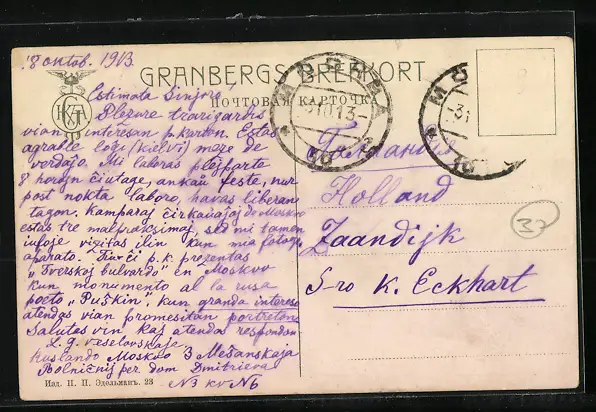 18 oktob. 1913.
GRANBERGS BREFKORT
Почтовая карточка
Estimata Sinjoro!
Plezure trarigardis
vian interesan p. karton. Estas
agrable loĝi (kiel vi) meze de
verdaĵo. Mi laboras plejparte
8 horojn ĉiutage, ankaŭ feste, nur
post nokta laboro, havas liberan
tagon. Kamparaj ĉirkaŭaĵoj de Moskvo
estas tre malproksimaj, sed mi tamen
vizitas ilin kun mia fotog.
aparato. Tiu ĉi p. k. prezentas
"Tverskoj bulvardo" en Moskvo
kun monumento al la rusa
poeto "Puŝkin", kun granda intereso
atendas vian promesitan portreton.
Salutas vin kaj atendas respondon
L. G. Veselovskaja.
Ruslando Moskvo 3 Meŝanskaja
dom Dmitrieva
N3 kv N6
Изд. П. П. Эдельманъ. 23
МОСКВА
МОС
Голландия
Holland
Zaandijk
S-ro K. Eckhart
37